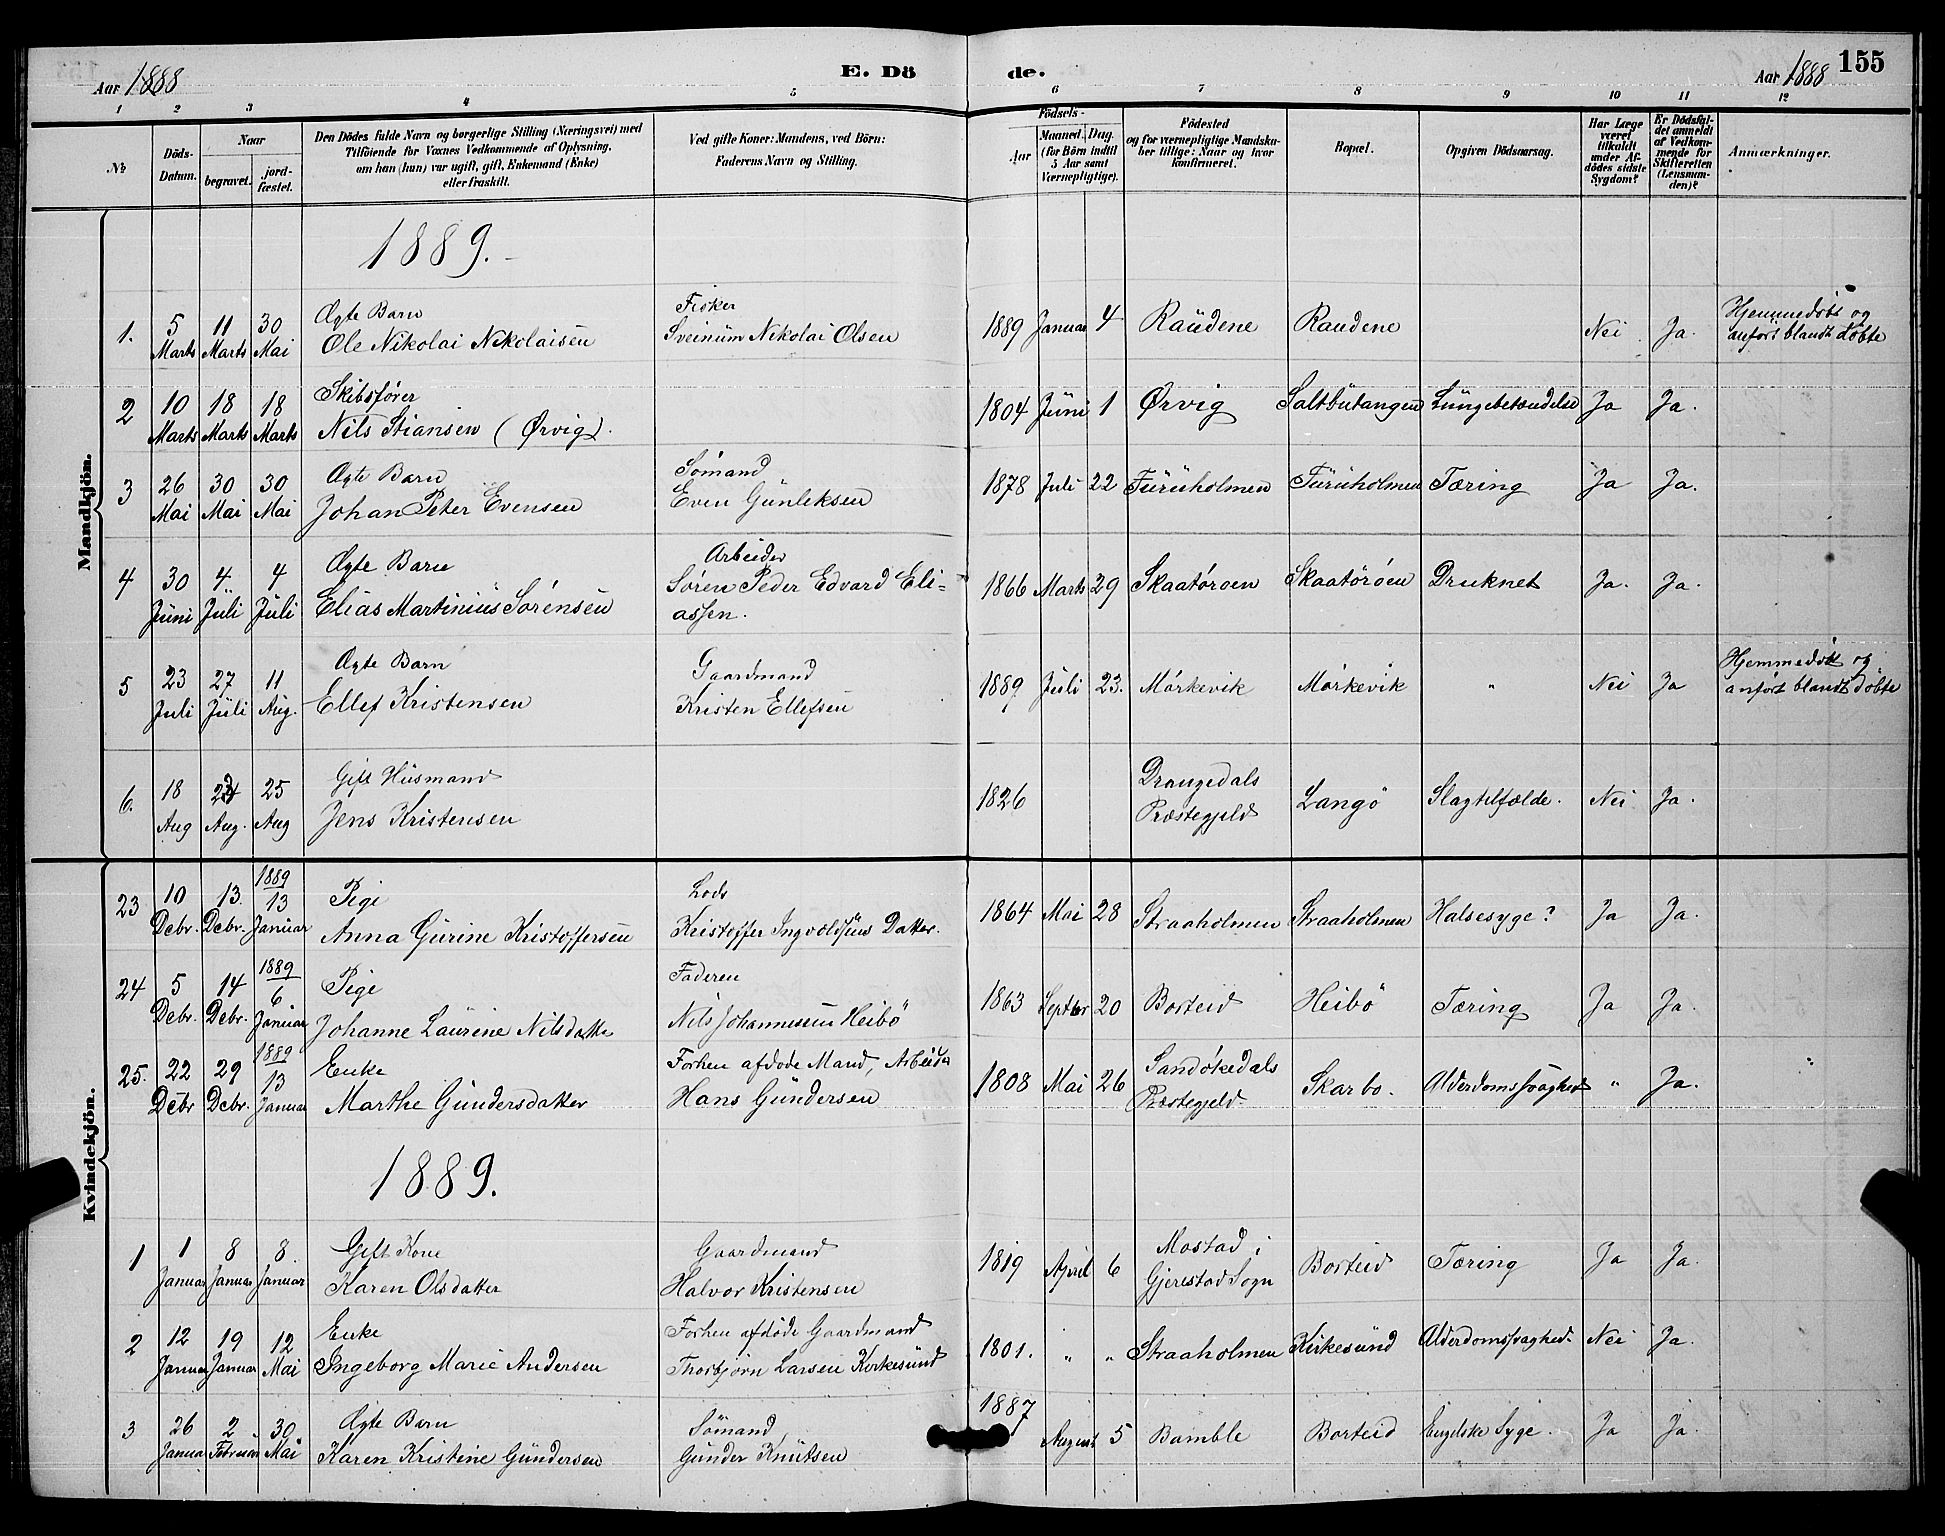 Aar 1888
E. Dö
de.
Aar 1888
155
1 2 3 4 5 6 7 8 9 10 11 12
No
Döds-Datum.
Naar
begravet.
jord-fæstet.
Den Dödes fulde Navn og borgerlige Stilling (Næringsvei) med
Tilföiende for Voxnes Vedkommende af Oplysning,
om han (hun) var ugift, gift, Enkemand (Enke)
eller fraskilt.
Ved gifte Koner: Mandens, ved Börn:
Faderens Navn og Stilling.
Födsels-
Aar
Maaned. Dag.
(for Börn indtil
5 Aar samt
Værnepligtige).
Födested
og for værnepligtige Mandska-
ber tillige: Naar og hvor
konfirmeret.
Bopæl.
Opgiven Dödsaarsag.
Har Læge
været
tilkaldt
under Af-
dödes sidste
Sygdom?
Er Dödsfal-
det anmeldt
af Vedkom-
mende for
Skifteretten
(Lensman-
den)?
Anmærkninger.
Mandkjön.
1889.
1. 5 Marts 11 Marts 30 Mai Ægte Barn Ole Nikolai Nikolaisen Fisker Sveinüm Nikolai Olsen 1889 Januar 4 Raüdene Raudene Nei Ja. Hjemmedöbt og anført blandt döbte
2 10 Marts 18 Marts 18 Marts Skibsfører Nils Stiansen (Ørvig). 1804 Jüni 1 Ørvig Saltbutangen Lüngebetændelse Ja Ja.
3 26 Mai 30 Mai 30 Mai Ægte Barn Johan Peter Evensen Sømand Even Günleksen 1878 Juli 22 Füruholmen Füruholmen Tæring Ja Ja.
4 30 Jüni 4 Jüli 4 Jüli Ægte Barn Elias Martinius Sørensen Arbeider Søren Peder Edvard Eli-
assen. 1866 Marts 29 Skaatøroen Skaatørøen Druknet Ja. Ja.
5 23 Juli 27 Jüli 11 Aug. Ægte Barn Ellef Kristensen Gaardmand Kristen Ellefsen 1889 Juli 23. Mørkevik Mørkevik " Nei Ja Hjemmedøbt og anført blandt døbte
6. 18 Aug 24 Aug. 25 Aug Gift Hüsmand Jens Kristensen 1826 Drangedals Præstegjeld Langö Slagtilfælde. Nei Ja.
Kvindekjön.
23 10 Debr. 13. Debr. 1889 13 Januar Pige Anna Gürine Kristoffersen Lods Kristoffer Ingvoldsens Datter. 1864 Mai 28 Straaholmen Straaholmen Halsesyge? Ja Ja.
24 5 Debr. 14 Debr. 1889 6. Januar Pige Johanne Laürine Nilsdatter Faderen Nils Johannesen Heibö 1863 Septbr 20 Borteid Heibö Tæring Ja Ja.
25. 22 Debr 29 Debr. 1889 13 Januar Enke Marthe Gündersdatter Forhen afdøde Mand, Arbeider Hans Gündersen 1808 Mai 26 Sandøkedals Præstegjeld. Skarbo. Alderdomssvaghed " Ja.
1889.
1 1 Januar 8 Januar 8. Januar Gift Kone Karen Olsdatter Gaardmand Halvor Kristensen 1819 April 6 Mostad i Gjerestad Sogn Borteid Tæring Ja Ja.
2 12 Januar 19 Januar 12 Mai Enke Ingeborg Marie Andersen Forhen afdøde Gaardmand Thorbjørn Larsen Kirkesünd 1801. " " Straaholmen Kirkesünd Alderdomssvaghed. Nei Ja.
3 26 Januar 2 Februar 30 Mai Ægte Barn Karen Kristine Gündersen Sømand Günder Knütsen 1887 August 5 Bamble Borteid Engelske Syge. Ja Ja.